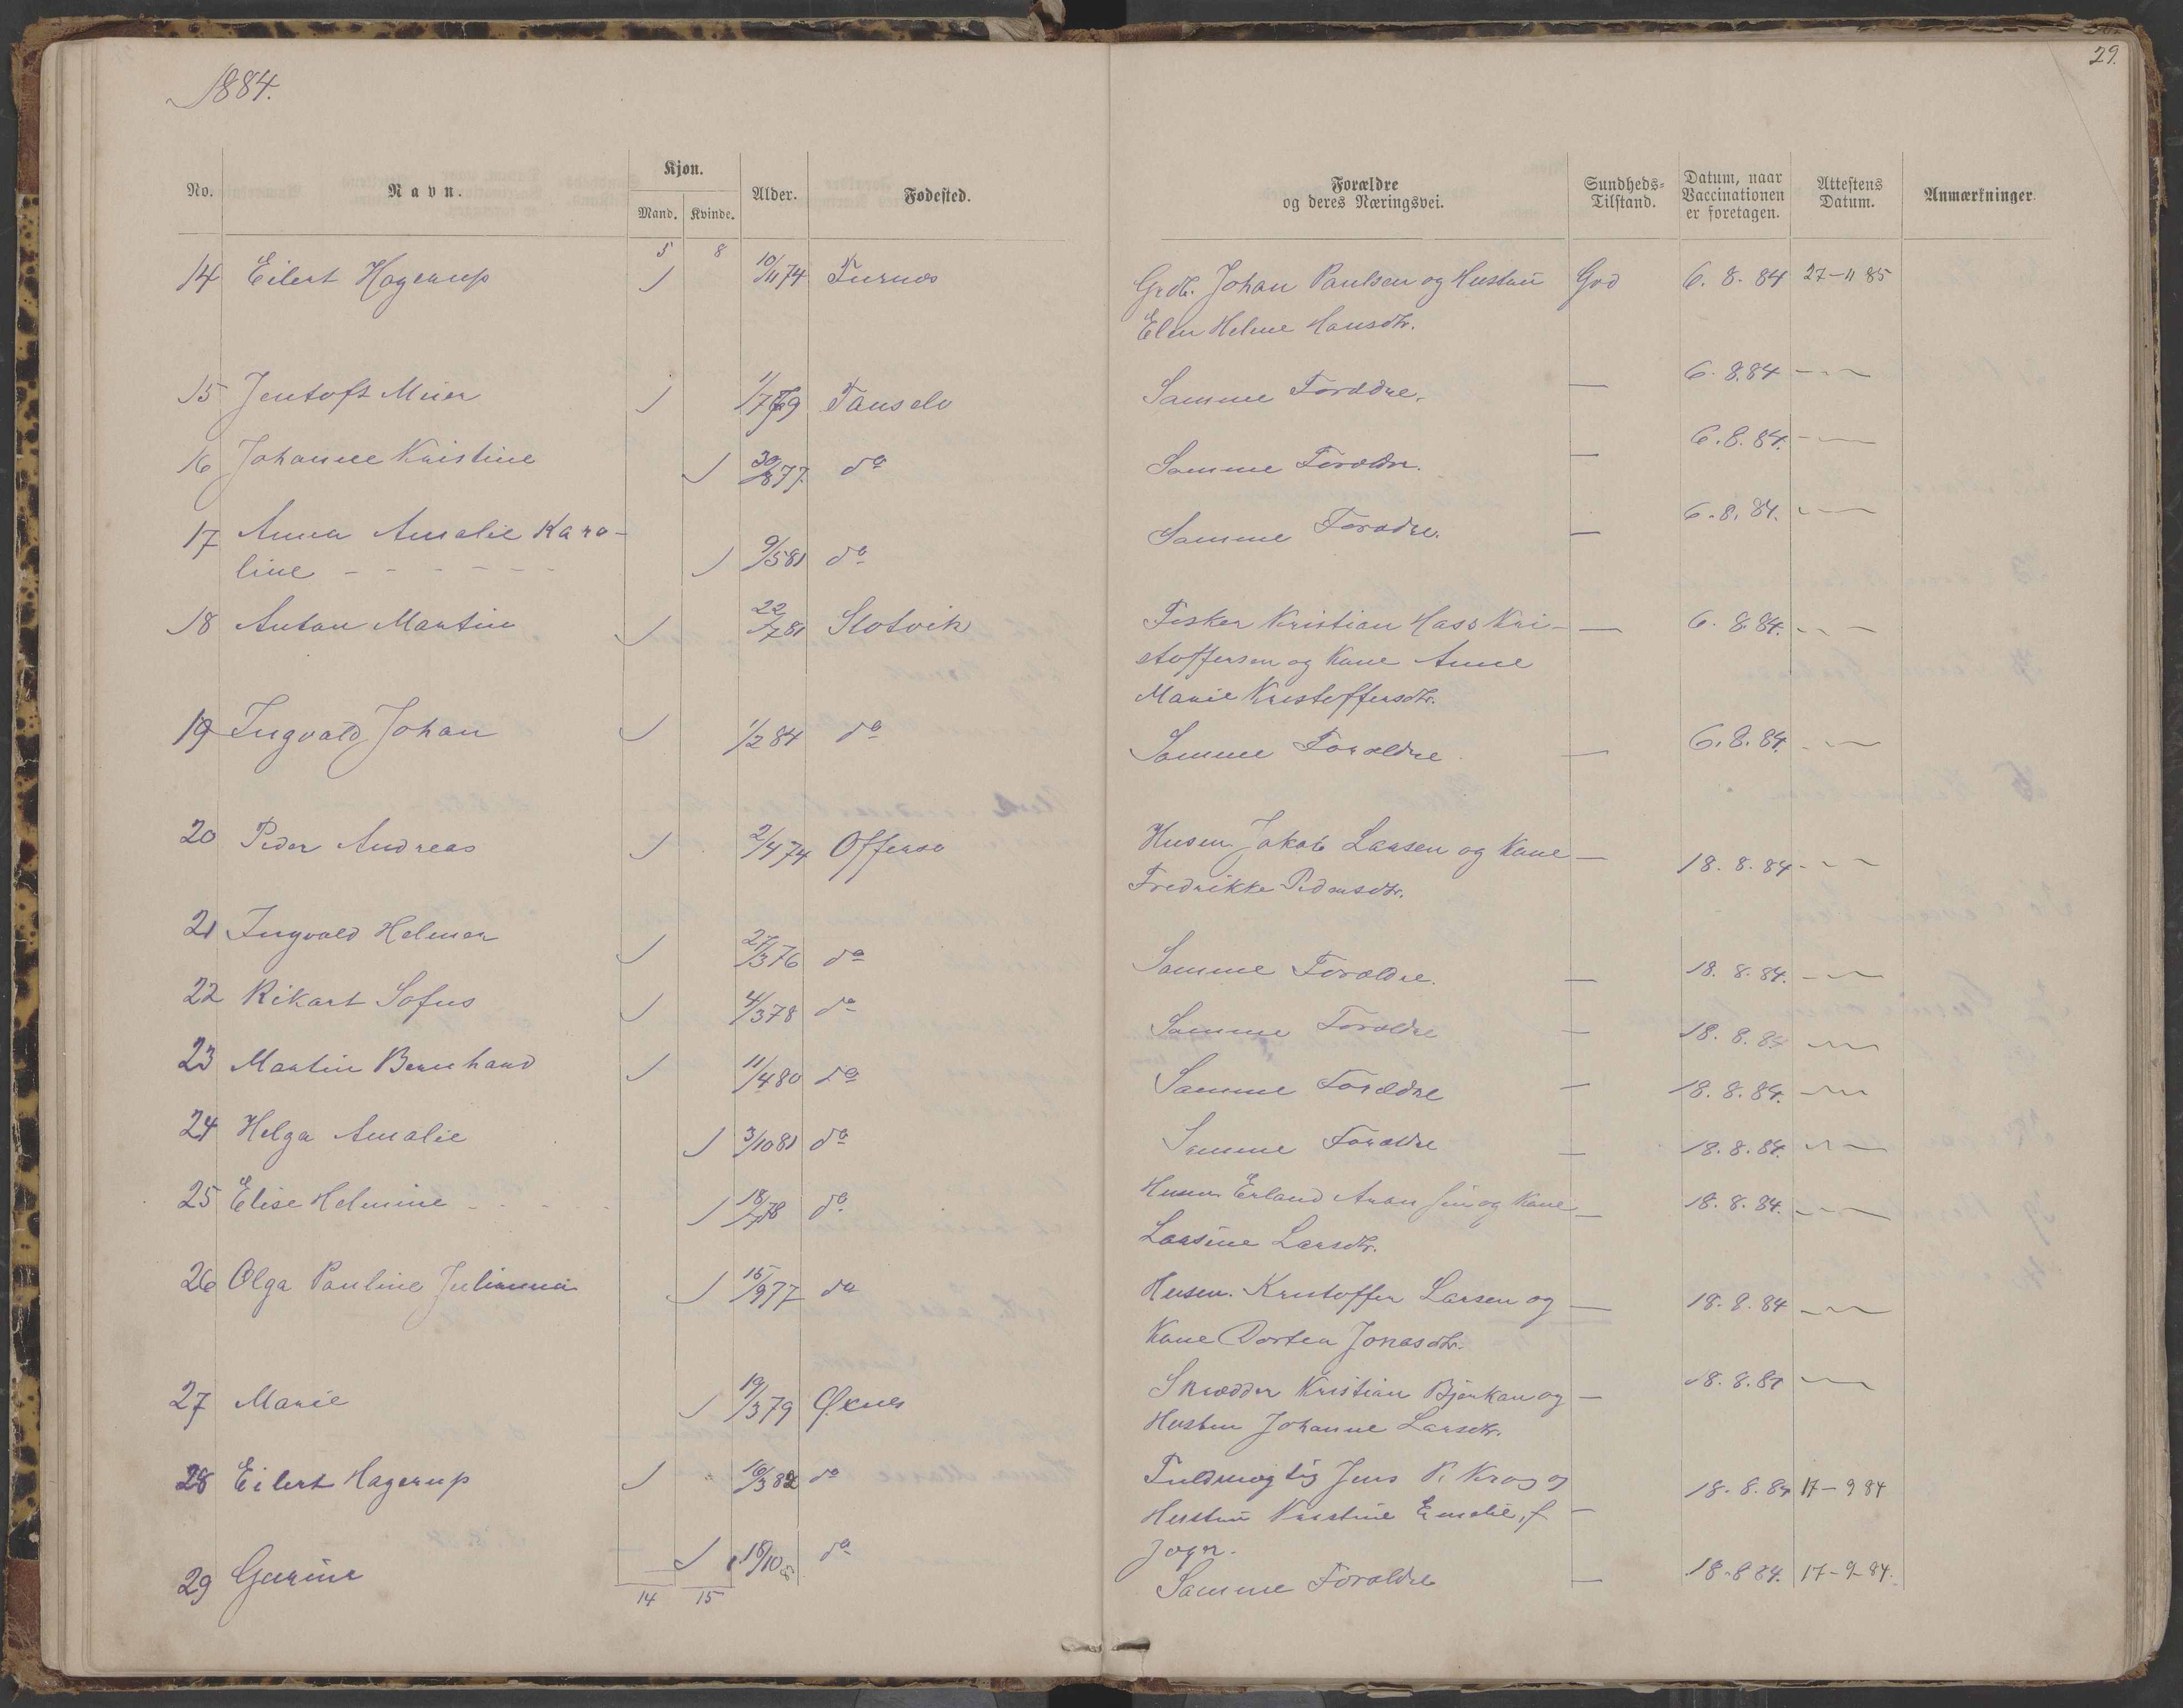 1884.
29.
No. Navn. Kjøn. Mand. Kvinde. Alder. Fødested. Forældre og deres Næringsvei. Sundheds-Tilstand. Datum, naar Vaccinationen er foretagen. Attestens Datum. Anmærkninger.
5 8
14 Eilert Hagerup 10/11 74 Grdb. Johan Paulsen og Hustru God 6. 8. 84 27-11 85
Elen Helene Hansdtr.
15 Jentoft Meier Samme Forældre. — 6. 8. 84 -〃-
16 Johanne Kristine 30/8 77. do Samme Forældre. — 6. 8. 84. -〃-
17 Anna Amalie Karo- 9/5 81 do Samme Forældre. — 6. 8. 84. -〃-
line - - - - - -
18 Anton Martin 22/7 81 Slotvik Fisker Kristian Hass Kri- — 6. 8. 84. -〃-
stoffersen og Kone Anne
Marie Kristoffersdtr.
19 Ingvald Johan 1/2 84 do Samme Forældre — 6. 8. 84. -〃-
20 Peder Andreas 2/4 74 Offersø Husm. Jakob Larsen og Kone — 18. 8. 84 -〃-
Fredrikke Pedersdtr.
21 Ingvald Helmer 27/3 76 do Samme Forældre. — 18. 8. 84. -〃-
22 Rikart Sofus 4/3 78 do Samme Forældre — 18. 8. 84 -〃-
23 Martin Bernhard 11/4 80 do Samme Forældre — 18. 8. 84. -〃-
24 Helga Amalie 3/10 81 do Samme Forældre — 18. 8. 84. -〃-
25 Elise Helmine 18/7 78 do Husm. Erland Aronsen og Kone — 18. 8. 84. -〃-
Larsine Larsdtr.
26 Olga Pauline Julianna 15/9 77 do Husm. Kristoffer Larsen og — 18. 8. 84 -〃-
Kone Dortea Jonasdtr.
27 Marie 19/3 79 Øxnes Skrædder Kristian Bjørkan og — 18. 8. 84 -〃-
Hustru Johanne Larsdtr.
28 Eilert Hagerup 16/3 82 do Fuldmægtig Jens P. Krog og — 18. 8. 84 17-9 84
Hustru Kristine Emelie, f
29 18/10 do Samme Forældre — 18-8 84. 17-9-84.
14 15